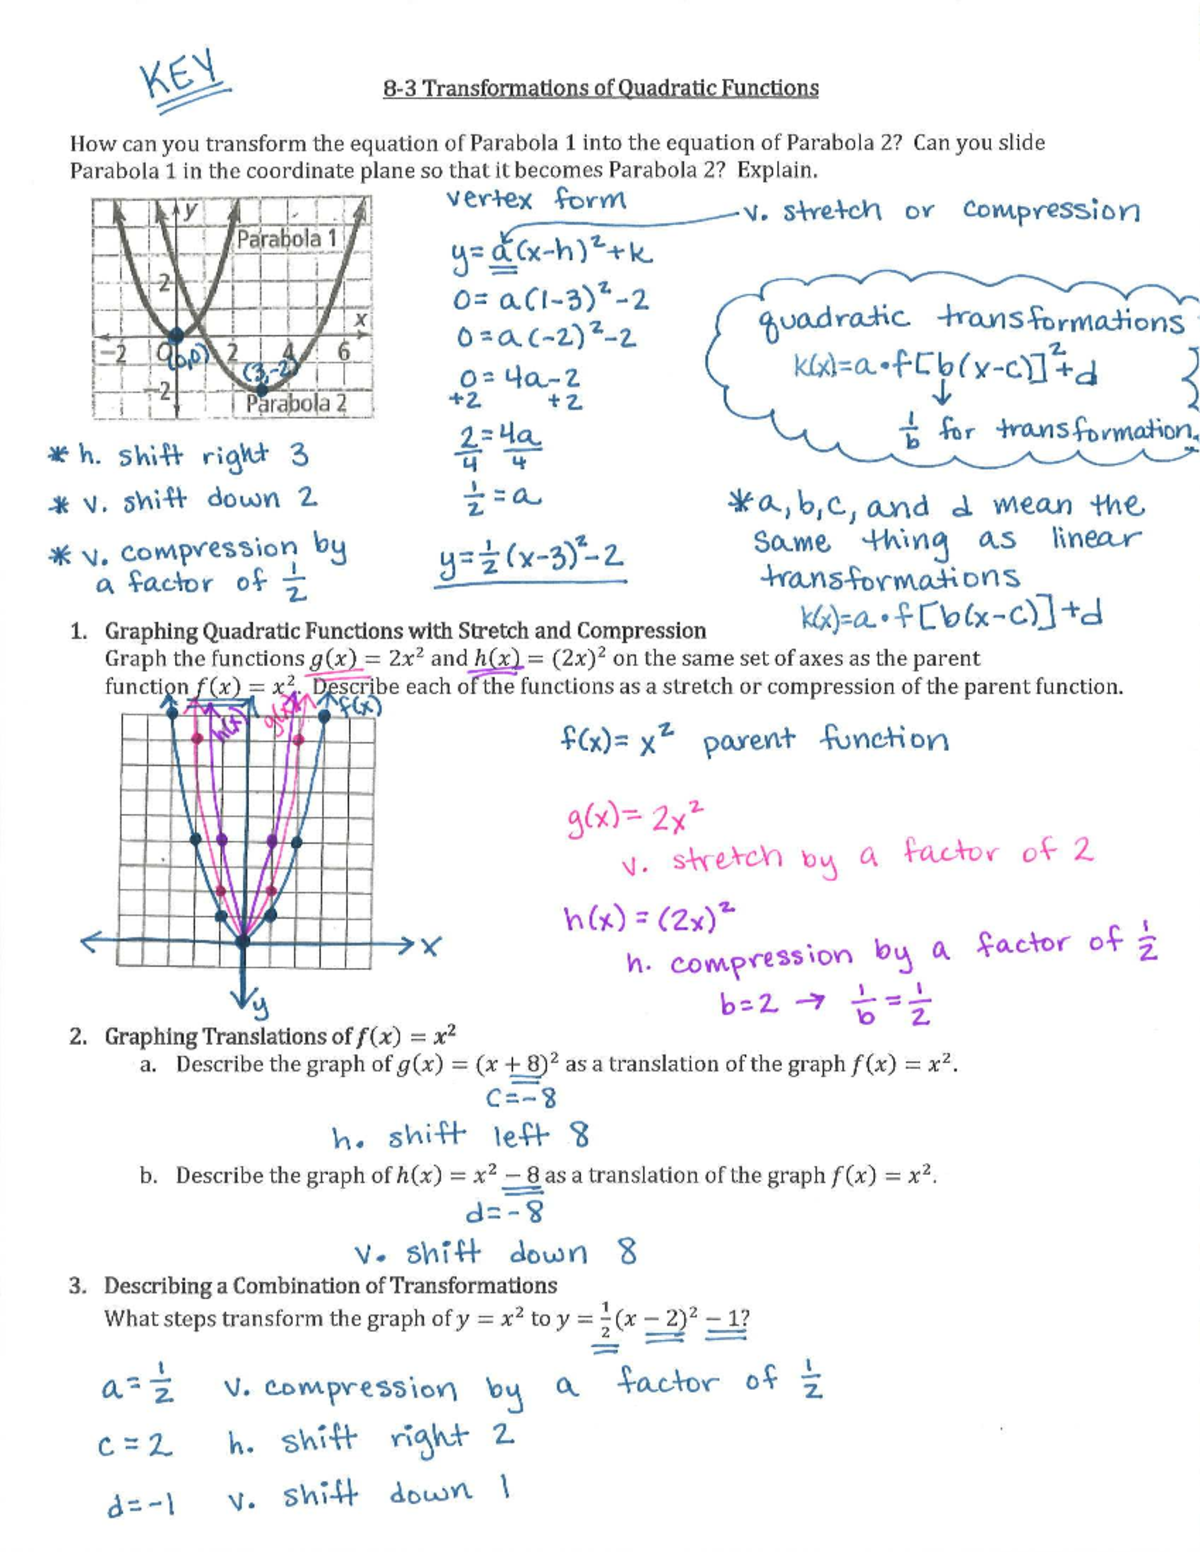 KEY
8-3 Transformations of Quadratic Functions
How can you transform the equation of Parabola 1 into the equation of Parabola 2? Can you slide
Parabola 1 in the coordinate plane so that it becomes Parabola 2? Explain.
y
Parabola 1
2
x
-2 O (0,0) 2 4 6
(3,-2)
-2
Parabola 2
* h. shift right 3
* v. shift down 2
* v. compression by
a factor of 1/2
vertex form
v. stretch or compression
y=a(x-h)²+k
0=a(1-3)²-2
0=a(-2)²-2
0=4a-2
+2 +2
2=4a
4 4
1/2=a
y=1/2(x-3)²-2
quadratic transformations
k(x)=a•f[b(x-c)]²+d
1/b for transformation.
*a,b,c, and d mean the
same thing as linear
transformations
k(x)=a•f[b(x-c)]+d
1. Graphing Quadratic Functions with Stretch and Compression
Graph the functions g(x) = 2x² and h(x) = (2x)² on the same set of axes as the parent
function f(x) = x². Describe each of the functions as a stretch or compression of the parent function.
h(x) g(x) f(x)
x
y
f(x)= x² parent function
g(x)= 2x²
v. stretch by a factor of 2
h(x) = (2x)²
h. compression by a factor of 1/2
b=2 → 1/b = 1/2
2. Graphing Translations of f(x) = x²
a. Describe the graph of g(x) = (x + 8)² as a translation of the graph f(x) = x².
c=-8
h. shift left 8
b. Describe the graph of h(x) = x² − 8 as a translation of the graph f(x) = x².
d=-8
v. shift down 8
3. Describing a Combination of Transformations
What steps transform the graph of y = x² to y = 1/2(x − 2)² − 1?
a=1/2 v. compression by a factor of 1/2
c=2 h. shift right 2
d=-1 v. shift down 1